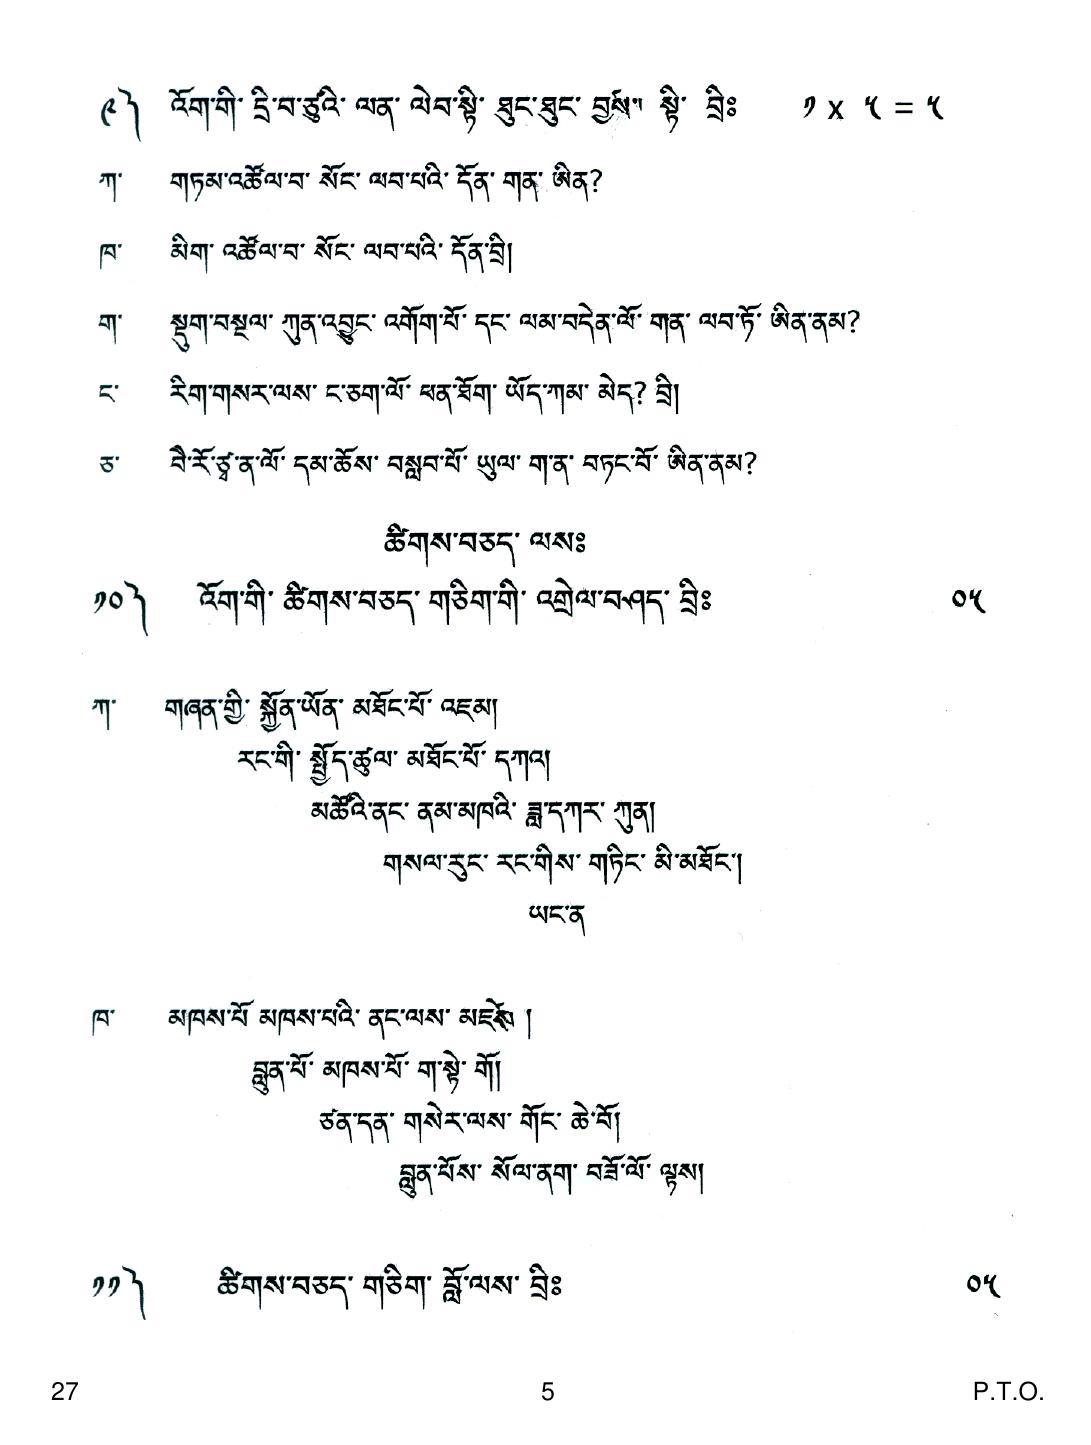 ༩༽ འོག་གི་ དྲི་བ་ཙུའི་ ལན་ ལེབ་སྟི་ ཐུང་ཐུང་ སྟི་ བྲིཿ ༡ x ༥ = ༥
ཀ་ གཏམ་འཚོལ་བ་ སོང་ ལབ་པའི་ དོན་ གན་ ཨིན?
ཁ་ མིག་ འཚོལ་བ་ སོང་ ལབ་པའི་ དོན་བྲི།
ག་ སྡུག་བསྔལ་ ཀུན་འབྱུང་ འགོག་པོ་ དང་ ལམ་བདེན་ལོ་ གན་ ལབ་ཏོ་ ཨིན་ནམ?
ང་ རིག་གསར་ལས་ ང་ཅག་ལོ་ ཕན་ཐོག་ ཡོད་ཀམ་ མེད? བྲི།
ཅ་ བཻ་རོ་ཙྭ་ན་ལོ་ དམ་ཆོས་ བསླབ་པོ་ ཡུལ་ ག་ན་ བཏང་བོ་ ཨིན་ནམ?
ཚིགས་བཅད་ ལསཿ
༡༠༽ འོག་གི་ ཚིགས་བཅད་ གཅིག་གི་ འགྲེལ་བཤད་ བྲིཿ ༠༥
ཀ་ གཞན་གྱི་ སྐྱོན་ཡོན་ མཐོང་པོ་ འཇམ།
རང་གི་ སྤྱོད་ཚུལ་ མཐོང་པོ་ དཀའ།
མཚོའི་ནང་ ནམ་མཁའི་ ཟླ་དཀར་ ཀུན།
གསལ་རུང་ རང་གིས་ གཏིང་ མི་མཐོང་།
ཡང་ན
ཁ་ མཁས་པོ མཁས་པའི་ ནང་ལས་ མཛེས །
བླུན་པོ་ མཁས་པོ་ ག་སྟེ་ གོ།
ཙན་དན་ གསེར་ལས་ གོང་ ཆེ་བོ།
བླུན་པོས་ སོལ་ནག་ བཟོ་ལོ་ ལྟས།
༡༡༽ ཚིགས་བཅད་ གཅིག་ བློ་ལས་ བྲིཿ ༠༥
27 5 P.T.O.